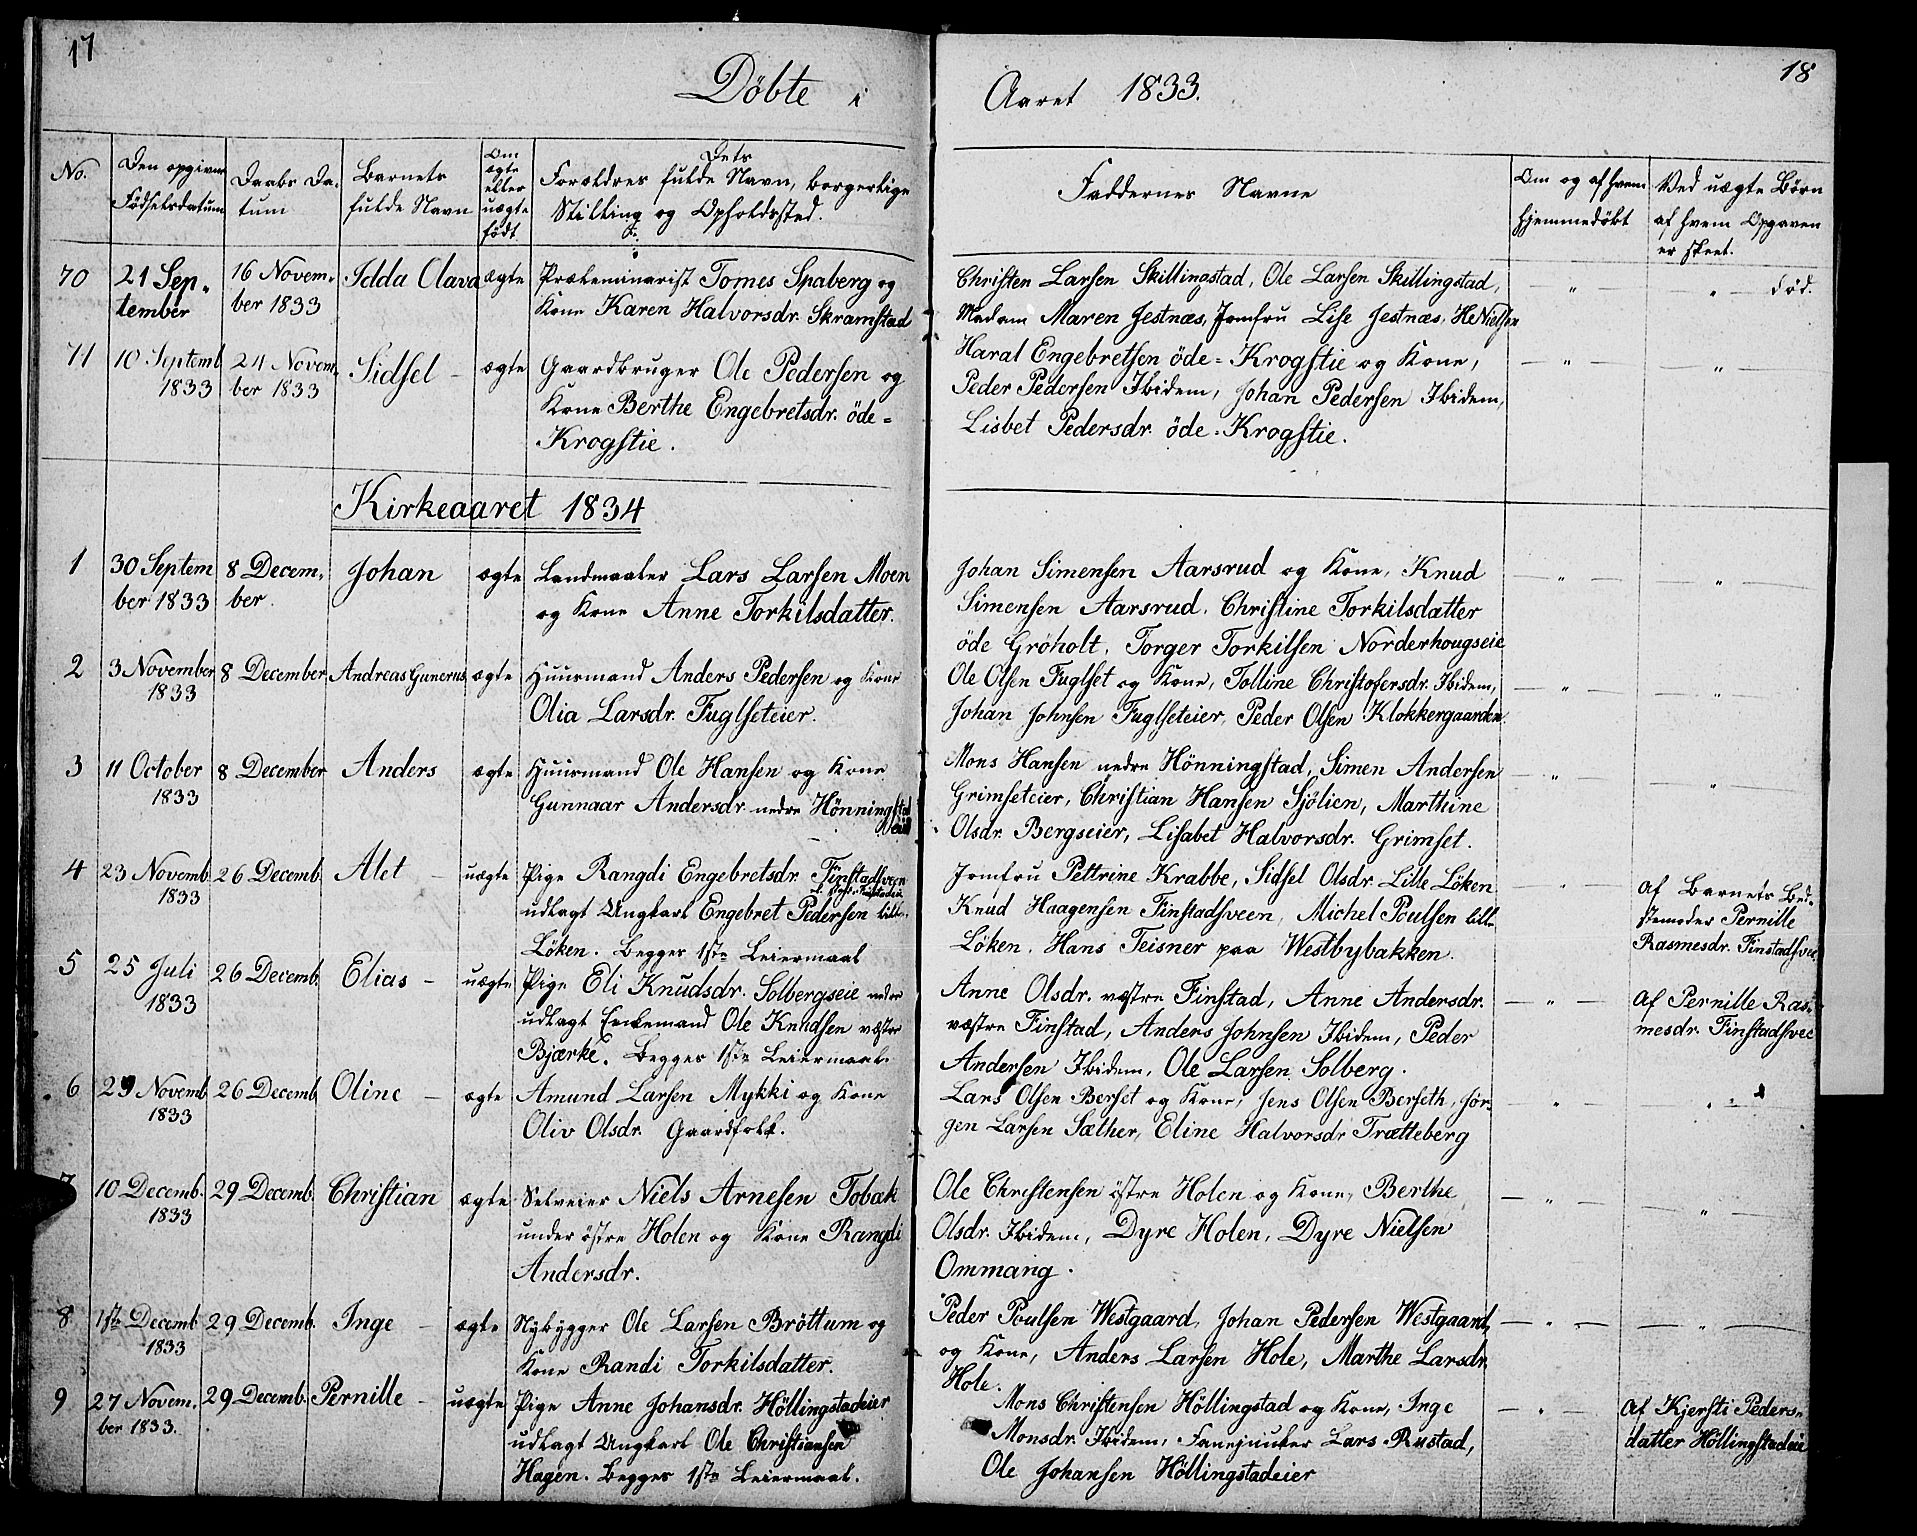 17
Döbte i
Aaret 1833.
18
No.
Den opgivne Födselsdatum
Daabs Datum
Barnets fulde Navn
Om ægte eller uægte födt.
Dets Forældres fulde Navn, borgerlige Stilling og Opholdssted.
Faddernes Navne
Om og af hvem hjemmedöbt
Ved uægte Börn af hvem Opgaven er skeet.
70 21 September 16 November 1833 Idda Olava ægte
Præliminarist Tomes Spaberg og
Kone Karen Halvorsdr. Skramstad
Christen Larsen Skillingstad, Ole Larsen Skillingstad,
Madam Maren Jestnæs, Jomfru Lise Jestnæs, H. Nielsen
" " död.
71 10 Septemb 1833 24 November 1833 Sidsel - ægte
Gaardbruger Ole Pedersen og
Kone Berthe Engebretsdr. öde=
Krogstie.
Haral Engebretsen öde=Krogstie og Kone,
Peder Pedersen Ibidem, Johan Pedersen Ibidem,
Lisbet Pedersdr. öde=Krogstie.
" "
Kirkeaaret 1834
1 30 September 1833 8 December. Johan ægte
Landmaaler Lars Larsen Moen
og Kone Anne Torkilsdatter.
Johan Simensen Aarsrud og Kone, Knud
Simensen Aarsrud. Christine Torkilsdatter
öde Gröholt, Torger Torkilsen Norderhougseie
" "
2 3 November 1833 8 December Andreas Gunerus ægte
Huusmand Anders Pedersen og Kone
Olia Larsdr. Fuglseteier.
Ole Olsen Fuglset og Kone, Tolline Christofersdr. Ibidem,
Johan Johnsen Fuglseteier, Peder Olsen Klokkergaarden.
" "
3 11 October 1833 8 December Anders ægte
Huusmand Ole Hansen og Kone
Gunnaar Andersdr nedre Hönningstad
eie
Mons Hansen nedre Hönningstad, Simen Andersen
Grimseteier, Christian Hansen Sjölien, Marthine
Olsdr. Bergseier, Lisabet Halvorsdr. Grimset.
" "
4 23 Novemb. 1833 26 Decemb. Alet - uægte
Pige Rangdi Engebretsdr. Finstadsveen
udlagt Ungkarl Engebret Pedersen lille
Löken. Begges 1ste Leiermaal
Jomfru Pettrine Krabbe, Sidsel Olsdr. Lille Löken
Knud Haagensen Finstadsveen, Michel Poulsen lille
Löken. Hans Teisner paa Westbybakken.
"
af Barnets Bed-
stemoder Pernille
Rasmesdr. Finstadsvee
5 25 Juli 1833 26 Decemb. Elias - uægte
Pige Eli Knudsdr. Solbergseie nedre
udlagt Enkemand Ole Knudsen væstre
Bjærke. Begges 1ste Leiermaal.
Anne Olsdr. væstre Finstad, Anne Andersdr.
væstre Finstad, Anders Johnsen Ibidem, Peder
Andersen Ibidem, Ole Larsen Solberg.
"
Af Pernille Ras-
mesdr. Finstadsvee
6 29 Novemb 1833 26 Decemb Oline - ægte
Amund Larsen Mykki og Kone
Oliv Olsdr. Gaardfolk.
Lars Olsen Berset og Kone, Jens Olsen Berseth, Jör-
gen Larsen Sæther, Eline Halvorsdr Trætteberg
" "
7 10 Decemb. 1833 29 Decemb. Christian ægte
Selveier Niels Arnesen Tobak
under östre Holen og Kone Rangdi
Andersdr.
Ole Christensen östre Holen og Kone, Berthe
Olsdr. Ibidem, Dyre Holen, Dyre Nielsen
Ommang.
" "
8 1ste Decemb 1833 29 Decemb. Inge - ægte
Nybygger Ole Larsen Bröttum og
Kone Randi Torkilsdatter.
Peder Poulsen Westgaard, Johan Pedersen Westgaard,
og Kone, Anders Larsen Hole, Marthe Larsdr.
Hole.
" "
9 27 November 1833. 29 Decemb. Pernille - uægte
Pige Anne Johansdr. Höllingstadeier
udlagt Ungkarl Ole Christiansen
Hagen. Begges 1ste Leiermaal.
Mons Christensen Höllingstad og Kone, Inge
Monsdr. Ibidem, Fanejunker Lars Rustad,
Ole Johansen Höllingstadeier
"
Af Kjersti Peders-
datter Höllingstadeie